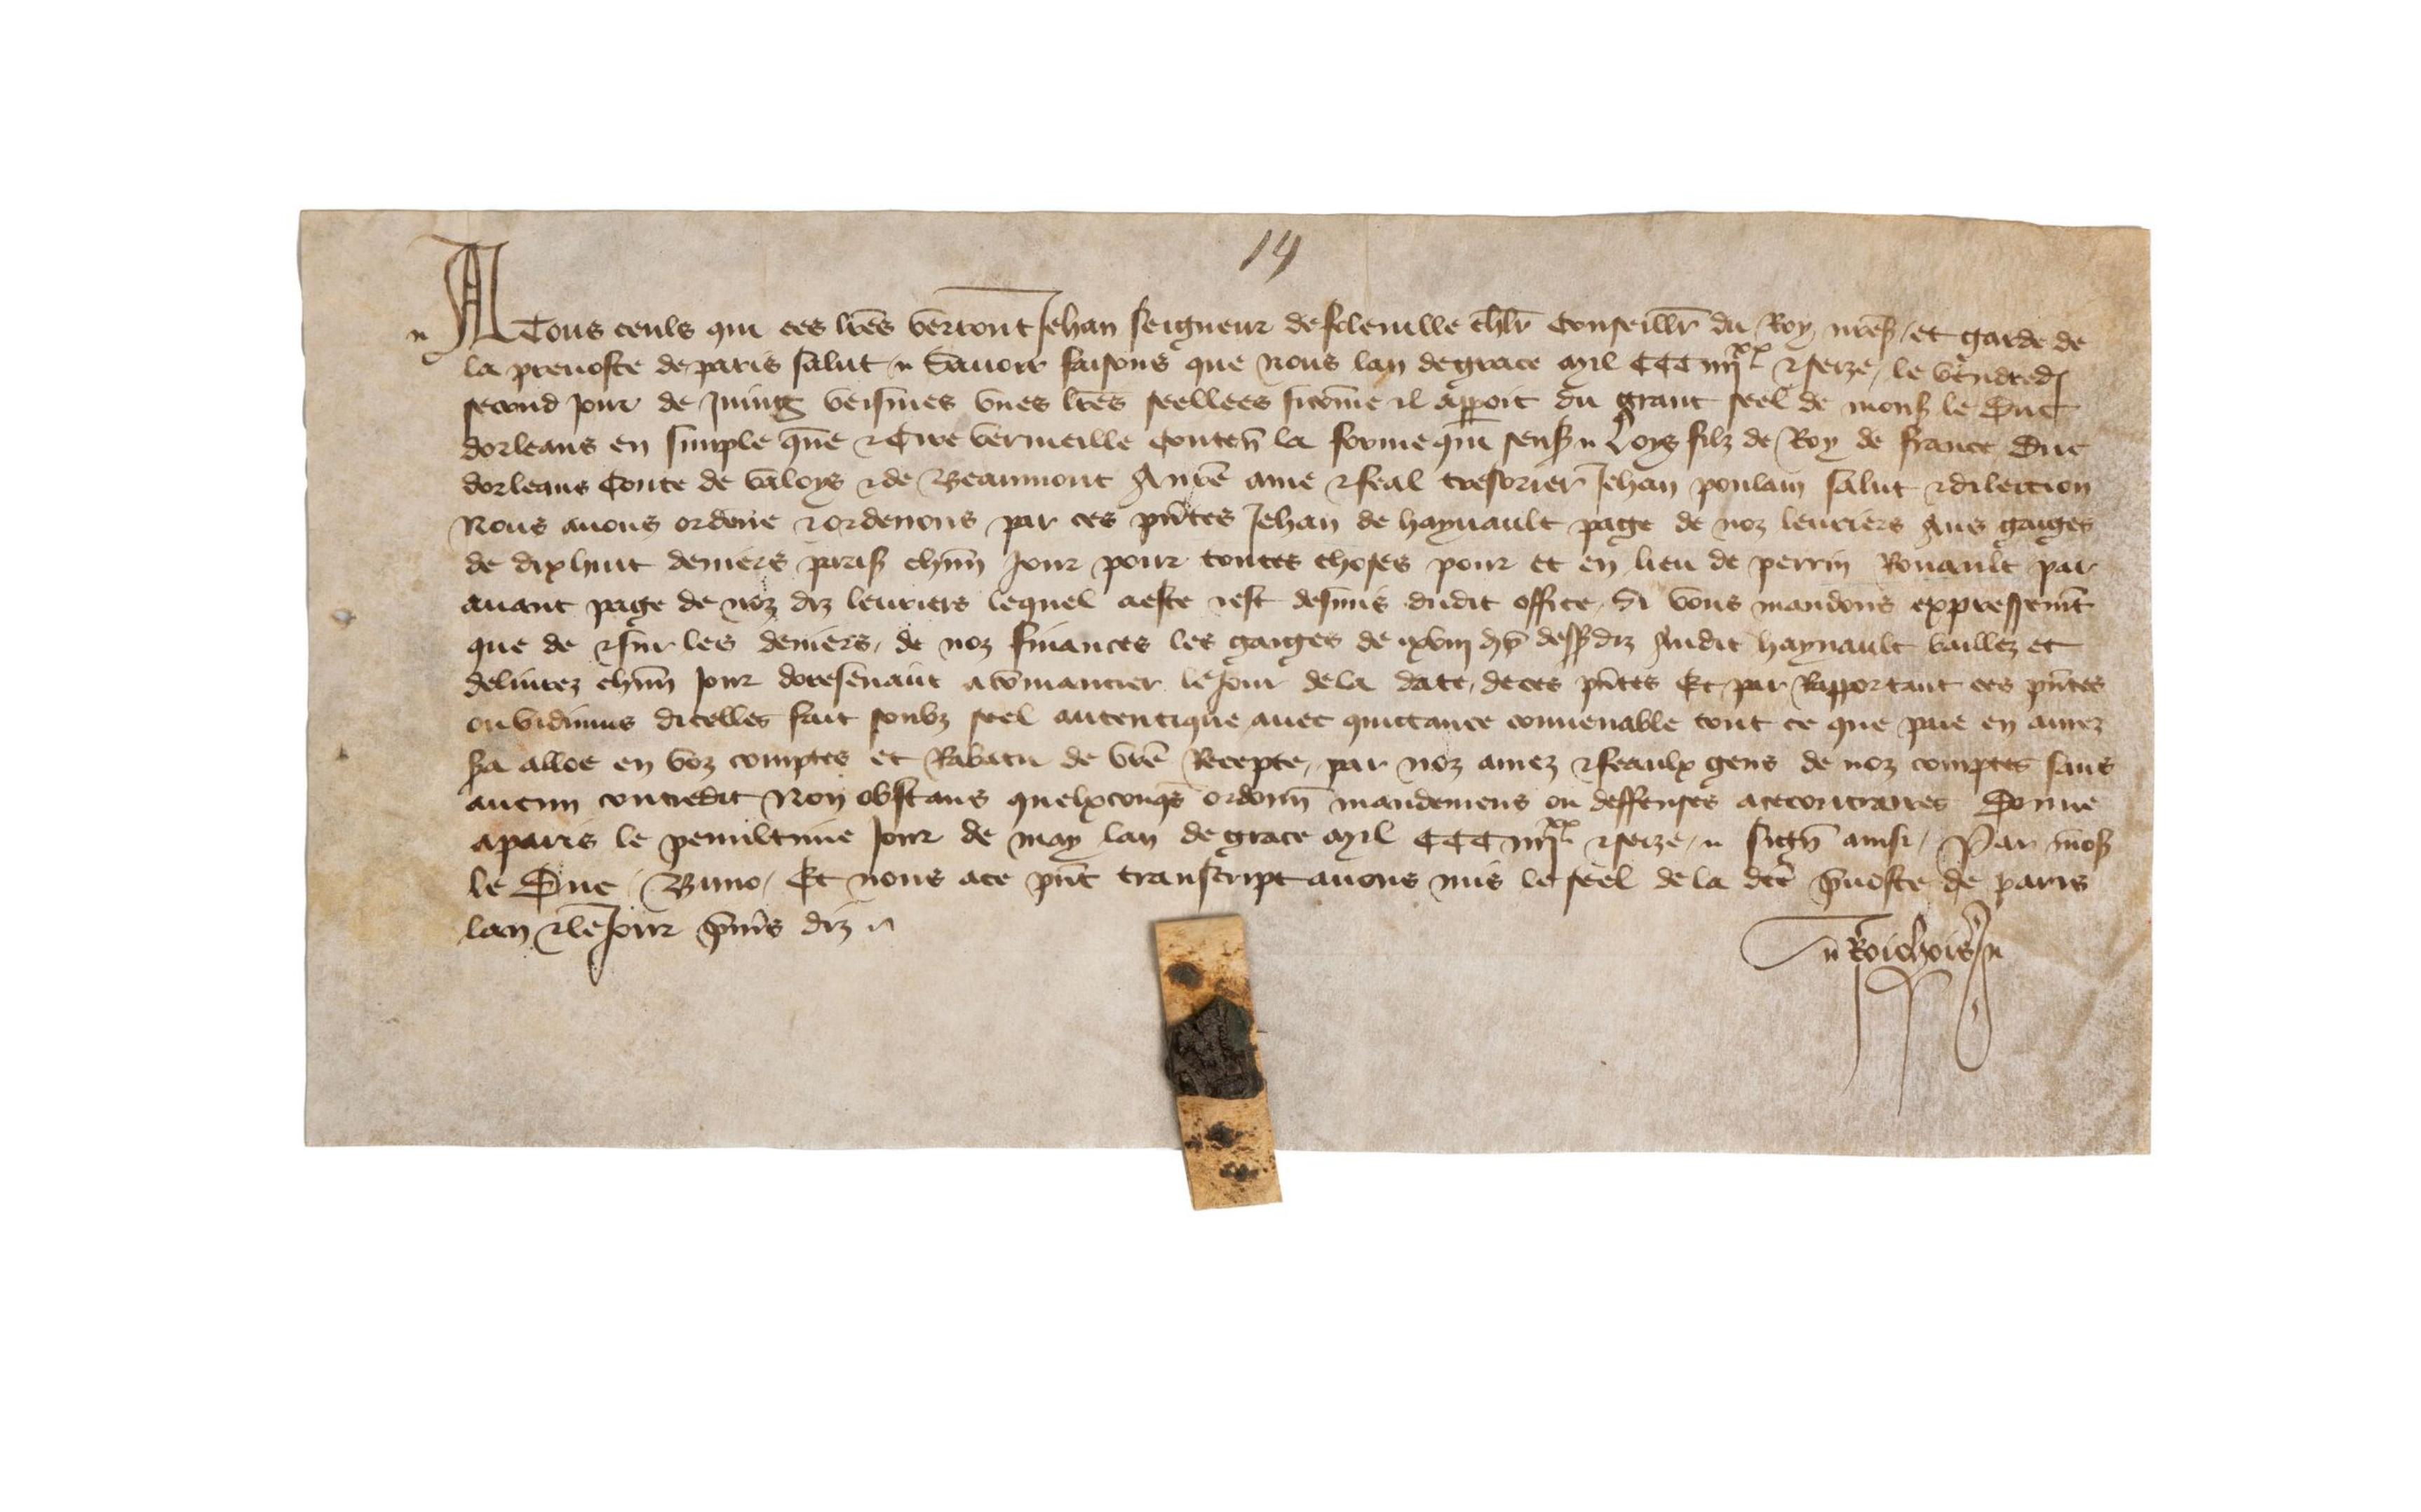 14
A Tous ceuls qui ces lrēs verront Jehan seigneur de foleuille chlr̄ Conseillr̄ du Roy nrēs / et garde de
la preuoste de paris salut // Sauoir faisons que Nous lan de grace mil CCC iiijxx & seize / le vendredi
second Jour de Juing veismes vnes lrēs seellees sicōme il apparoit du grant seel de mons le Duc
dorleans en simple queūe & Cire vermeille Conten̄ la forme qui sensꝭ // Loys filz de Roy de france Duc
dorleans Conte de valoys & de Beaumont A nrē ame & feal tresorier Jehan poulain salut & dilection
Nous auons ordene & ordenons par ces pn̄tes Jehan de haynault page de noz leuriers Aus gaiges
de dix huit deniers paris chūn Jour pour toutes choses pour et en lieu de perrin Rouault par
auant page de noz diz leuriers lequel a este & est desmis dudit office / Si vous mandons expressem̄t
que de & sur les deniers / de noz finances les gaiges de xviij d p̄ dess diz Audit haynault bailliez et
deliurez chūn Jour doresenauāt a cōmancier le Jour de la date / de ces pn̄tes Et par Rapportant ces pn̄tes
ou vidimus dicelles fait soubz seel autentique auec quittance conuenable tout ce que paie en aurez
sera alloe en voz comptes et Rabatu de vrē Recepte / par noz amez & feaulx gens de noz comptes sans
aucun contredit Non obstans quelxconqs ordonn̄ mandemens ou deffenses a ce contraires Donne
a paris le penultime Jour de may lan de grace mil CCC iiijxx & seize // sign̄ ainsi / Par mons
le Duc / Buno / Et nous a ce pn̄t transcript auons mis le seel de la dc̄e p̄uoste de paris
lan & le Jour p̄miers diz //